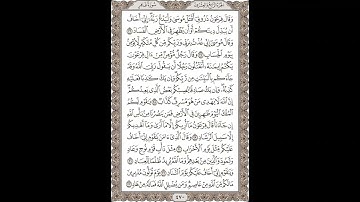 وَقَالَ فِرْعَوْنُ ذَرُونِيٓ أَقْتُلْ مُوسَىٰ وَلْيَدْعُ رَبَّهُۥٓ إِنِّيٓ أَخَافُ
أَن يُبَدِّلَ دِينَكُمْ أَوْ أَن يُظْهِرَ فِي ٱلْأَرْضِ ٱلْفَسَادَ ٢٦
وَقَالَ مُوسَىٰٓ إِنِّي عُذْتُ بِرَبِّي وَرَبِّكُم مِّن كُلِّ مُتَكَبِّرٍ لَّا يُؤْمِنُ
بِيَوْمِ ٱلْحِسَابِ ٢٧ وَقَالَ رَجُلٌ مُّؤْمِنٌ مِّنْ ءَالِ فِرْعَوْنَ
يَكْتُمُ إِيمَٰنَهُۥٓ أَتَقْتُلُونَ رَجُلًا أَن يَقُولَ رَبِّيَ ٱللَّهُ وَقَدْ
جَآءَكُم بِٱلْبَيِّنَٰتِ مِن رَّبِّكُمْ وَإِن يَكُ كَٰذِبًا فَعَلَيْهِ
كَذِبُهُۥ وَإِن يَكُ صَادِقًا يُصِبْكُم بَعْضُ ٱلَّذِي يَعِدُكُمْ
إِنَّ ٱللَّهَ لَا يَهْدِي مَنْ هُوَ مُسْرِفٌ كَذَّابٌ ٢٨ يَٰقَوْمِ لَكُمُ
ٱلْمُلْكُ ٱلْيَوْمَ ظَٰهِرِينَ فِي ٱلْأَرْضِ فَمَن يَنصُرُنَا مِنۢ بَأْسِ ٱللَّهِ
إِن جَآءَنَا قَالَ فِرْعَوْنُ مَآ أُرِيكُمْ إِلَّا مَآ أَرَىٰ وَمَآ أَهْدِيكُمْ
إِلَّا سَبِيلَ ٱلرَّشَادِ ٢٩ وَقَالَ ٱلَّذِيٓ ءَامَنَ يَٰقَوْمِ إِنِّيٓ أَخَافُ
عَلَيْكُم مِّثْلَ يَوْمِ ٱلْأَحْزَابِ ٣٠ مِثْلَ دَأْبِ قَوْمِ نُوحٍ وَعَادٍ
وَثَمُودَ وَٱلَّذِينَ مِنۢ بَعْدِهِمْ وَمَا ٱللَّهُ يُرِيدُ ظُلْمًا لِّلْعِبَادِ ٣١
وَيَٰقَوْمِ إِنِّيٓ أَخَافُ عَلَيْكُمْ يَوْمَ ٱلتَّنَادِ ٣٢ يَوْمَ تُوَلُّونَ مُدْبِرِينَ
مَا لَكُم مِّنَ ٱللَّهِ مِنْ عَاصِمٍ وَمَن يُضْلِلِ ٱللَّهُ فَمَا لَهُۥ مِنْ هَادٍ ٣٣
٤٧٠